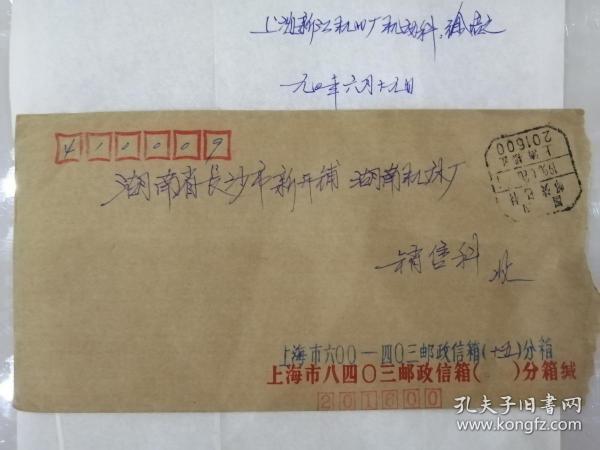 上海新江机四厂机动科
一九九四年六月十九日
410009
湖南省长沙市新开铺 湖南机床厂
销售科 收
国内邮资已付
上海松江
201600
上海市六00一四0三邮政信箱(十五)分箱
上海市八四〇三邮政信箱( )分箱缄
201600
孔夫子旧书网
www.kongfz.com